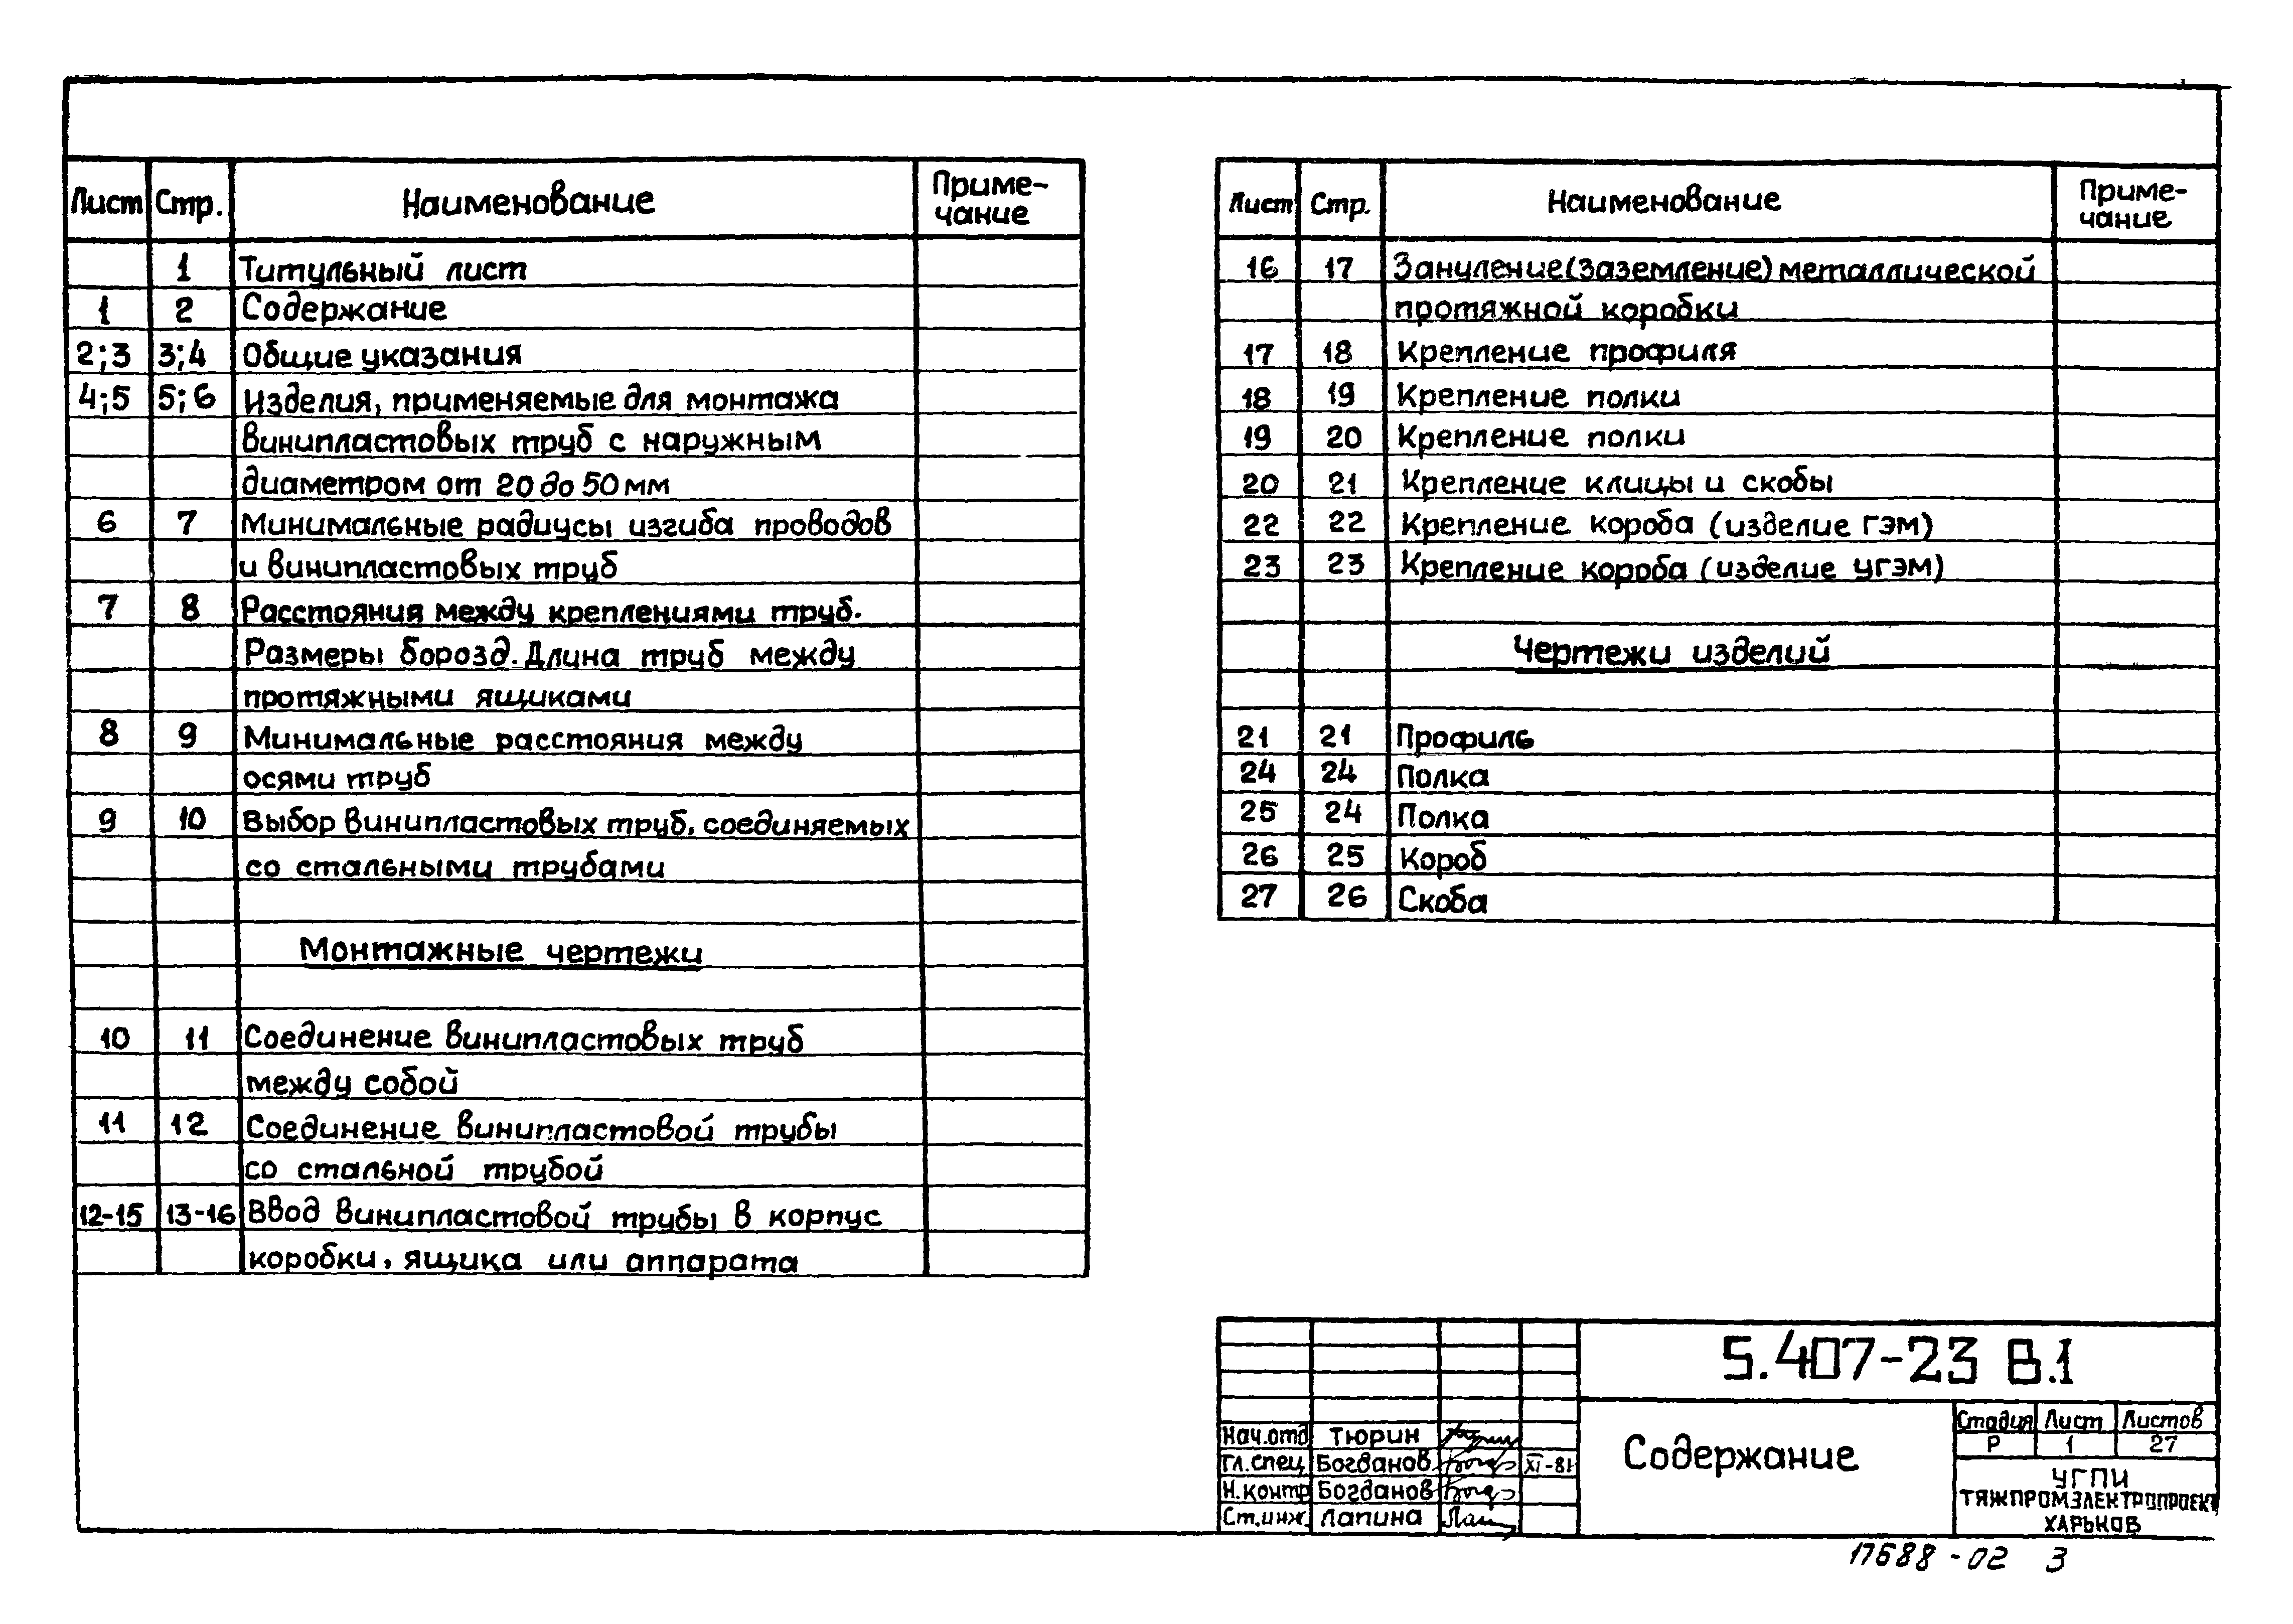 Лист Стр. Наименование Приме-
чание
1 Титульный лист
1 2 Содержание
2;3 3;4 Общие указания
4;5 5;6 Изделия, применяемые для монтажа
винипластовых труб с наружным
диаметром от 20 до 50 мм
6 7 Минимальные радиусы изгиба проводов
и винипластовых труб
7 8 Расстояния между креплениями труб.
Размеры борозд. Длина труб между
протяжными ящиками
8 9 Минимальные расстояния между
осями труб
9 10 Выбор винипластовых труб, соединяемых
со стальными трубами
Монтажные чертежи
10 11 Соединение винипластовых труб
между собой
11 12 Соединение винипластовой трубы
со стальной трубой
12-15 13-16 Ввод винипластовой трубы в корпус
коробки, ящика или аппарата
Лист Стр. Наименование Приме-
чание
16 17 Зануление (заземление) металлической
протяжной коробки
17 18 Крепление профиля
18 19 Крепление полки
19 20 Крепление полки
20 21 Крепление клицы и скобы
22 22 Крепление короба (изделие ГЭМ)
23 23 Крепление короба (изделие УГЭМ)
Чертежи изделий
21 21 Профиль
24 24 Полка
25 24 Полка
26 25 Короб
27 26 Скоба
5.407-23 В.1
Нач.отд Тюрин
Гл.спец. Богданов XI-81
Н.контр Богданов
Ст.инж. Лапина
Содержание
Стадия Лист Листов
Р 1 27
УГПИ
ТЯЖПРОМЭЛЕКТРОПРОЕКТ
ХАРЬКОВ
17688-02 3